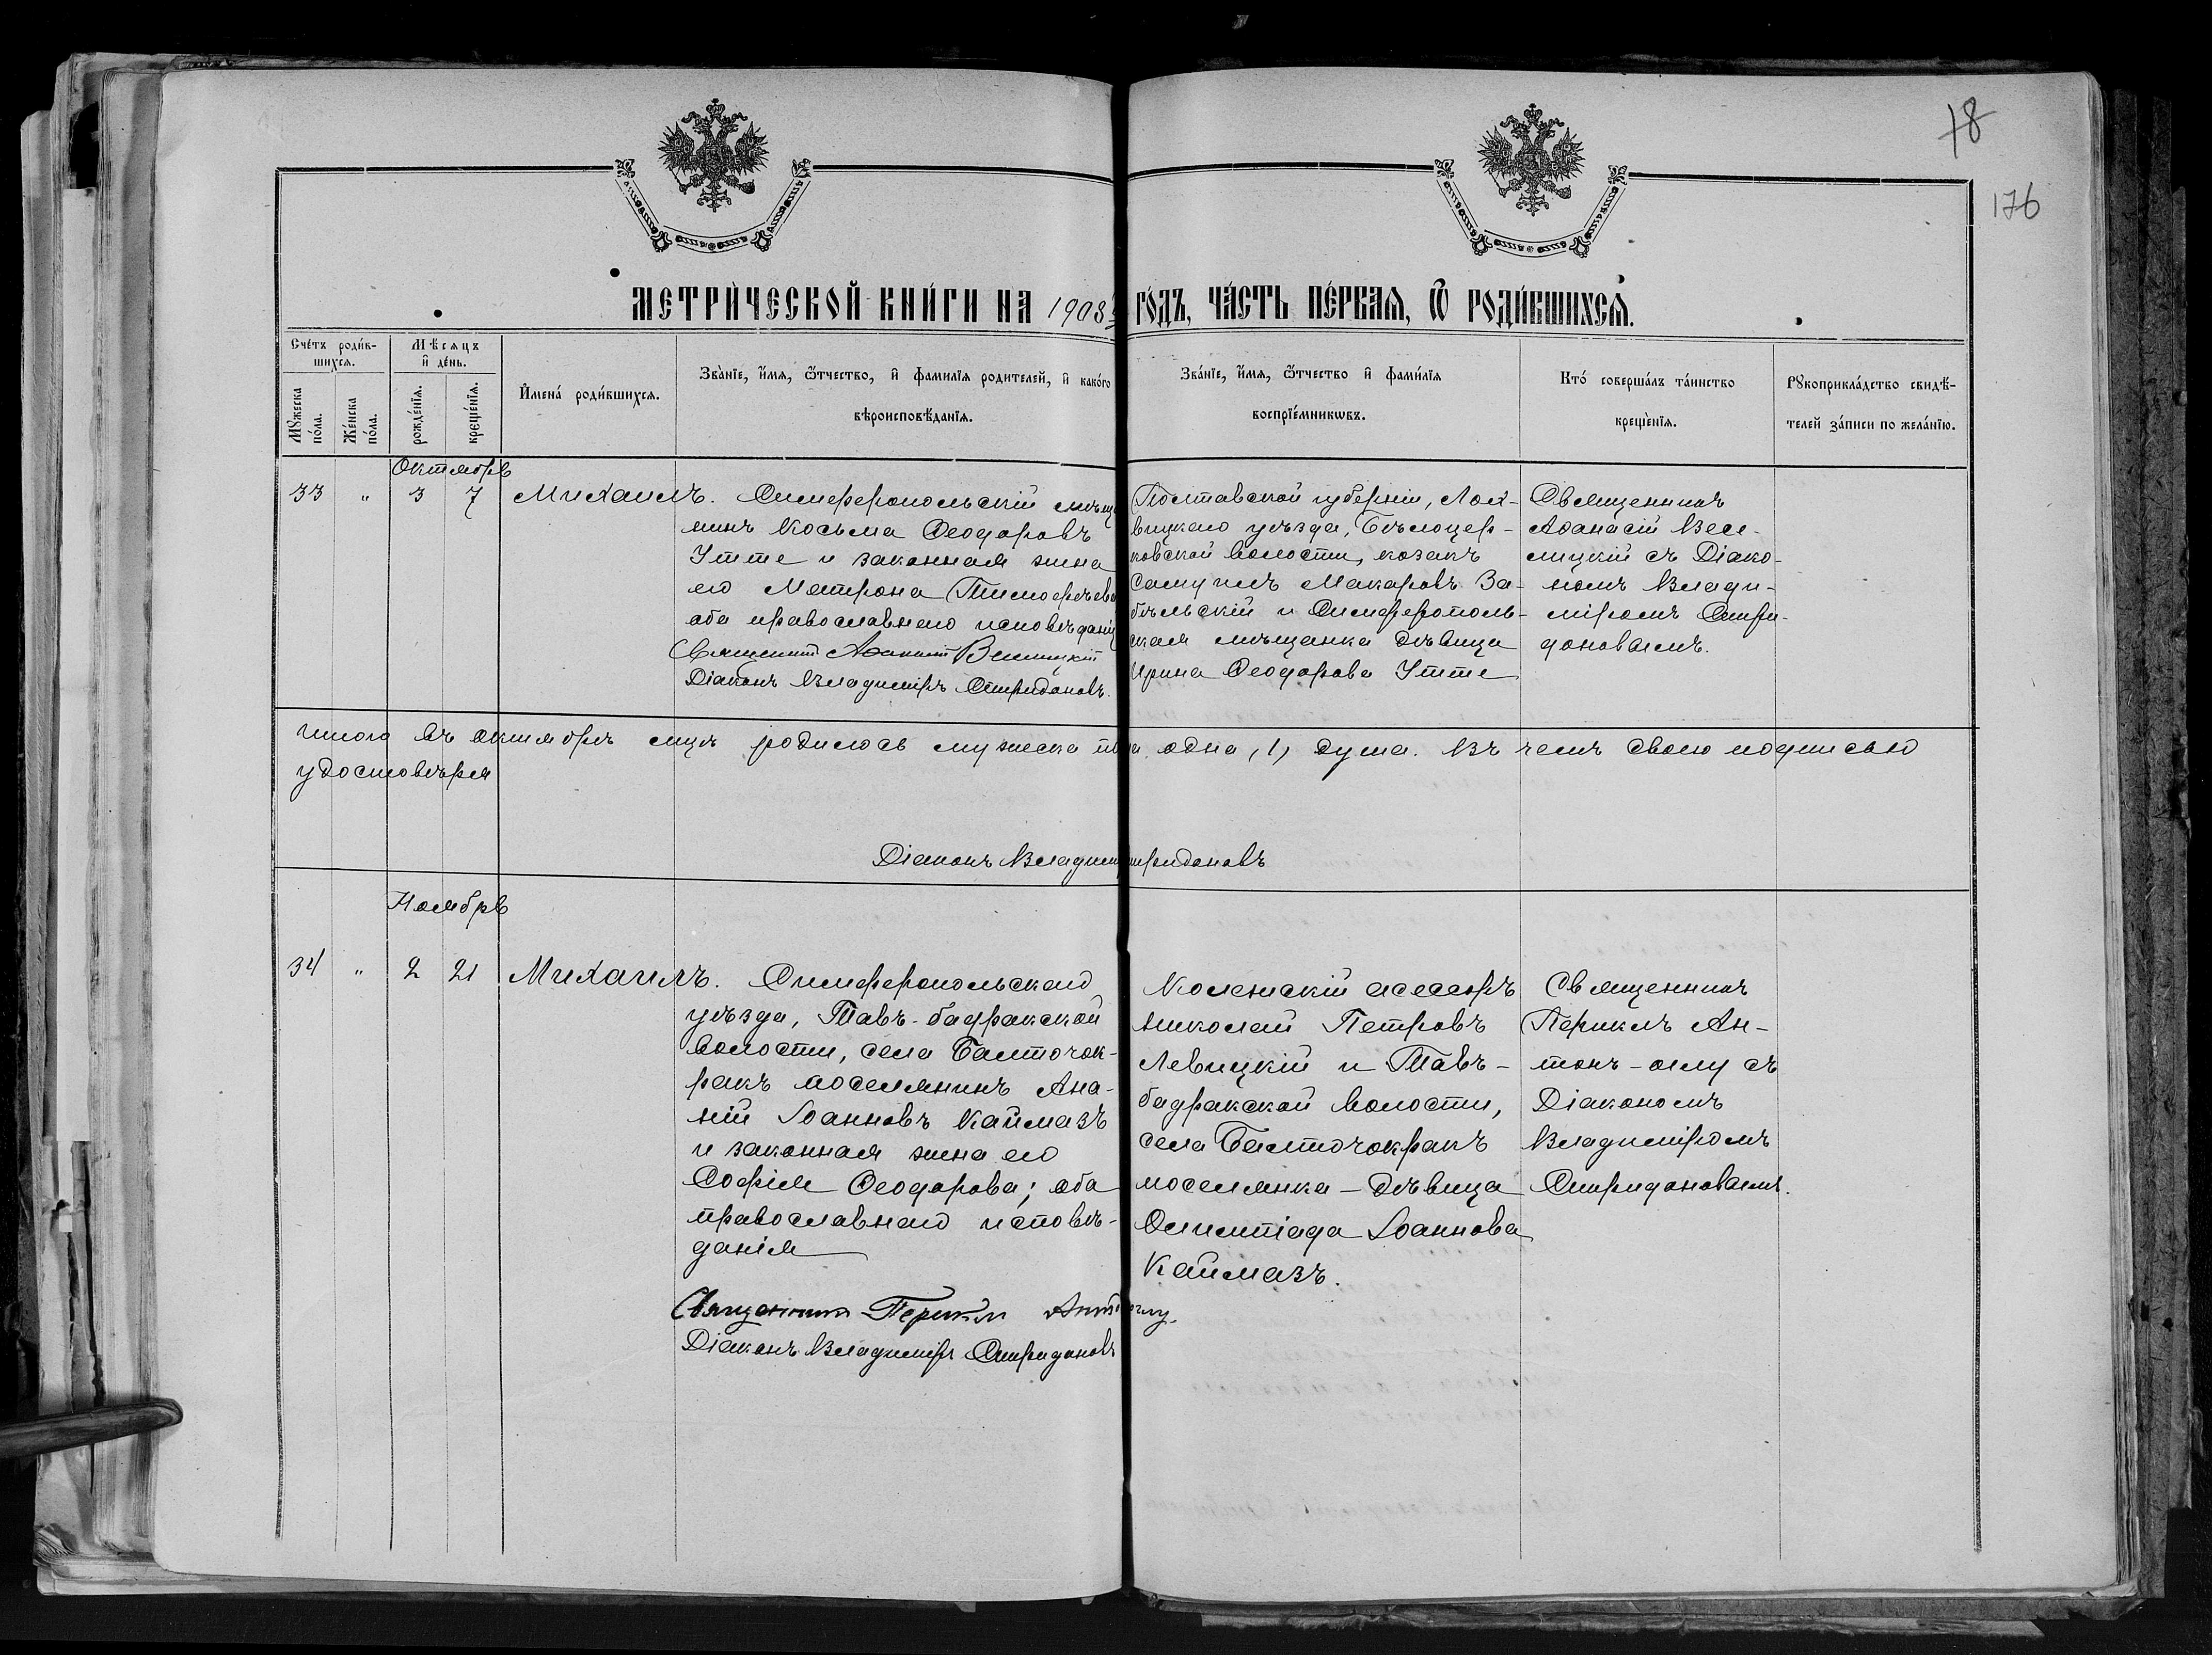 78
176
МЕТРИ́ЧЕСКОЙ КНИ́ГИ НА 1908й ГО́ДЪ, ЧА́СТЬ ПЕ́РВАЯ, Ѿ РОДИ́ВШИХСЯ.
Сче́тъ роди́в-
шихся.
Мѣсяцъ
и҆ де́нь.
Мꙋжеска
по́ла.
Же́нска
по́ла.
рожде́нїя.
креще́нїя.
И҆мена́ роди́вшихся.
Зва́нїе, и҆́мя, ѻ҆́тчество, и҆ фами́лїя роди́телей, и҆ како́го
вѣроисповѣ́данїя.
Зва́нїе, и҆́мя, ѻ҆́тчество и҆ фами́лїя
воспрїе́мникѡвъ.
Кто́ соверша́лъ та́инство
креще́нїя.
Рꙋкоприкла́дство свидѣ́-
телей за́писи по жела́нїю.
Октябрь
33 " 3 7 Михаилъ.
Симферопольскій мѣща
нинъ Косьма Ѳеодоровъ
Утте и законная жена
его Матрона Тимоѳѣева
оба православнаго исповѣданія
Священникъ Аѳанасій Велицкій
Діаконъ Владиміръ Спиридоновъ.
Полтавской губерніи, Лох-
вицкаго уѣзда, Бѣлоцер-
ковской волости, козакъ
Самуилъ Макаровъ За-
бѣльскій и Симферополь-
ская мѣщанка дѣвица
Ирина Ѳеодорова Утте
Священникъ
Аѳанасій Вели-
лицкій съ Діако-
номъ Влади-
міромъ Спири-
доновымъ.
Итого въ октябрѣ мцѣ родилось мужеска пола одна, 1, душа. Въ чемъ свою подписью
удостовѣряя
Діаконъ Владиміръ Спиридоновъ
Ноябрь
34 " 2 21 Михаилъ.
Симферопольскаго
уѣзда, Тавъ-бадракской
волости, села Балточок-
ракъ поселянинъ Ана-
ній Іоанновъ Каймазъ
и законная жена его
Софія Ѳеодорова; оба
православнаго исповѣ-
данія
Священникъ Периклъ Антонъ-оглу.
Діаконъ Владиміръ Спиридоновъ
Коллежскій асессоръ
Николай Петровъ
Левицкій и Тавъ-
бадракской волости,
села Балточокракъ
поселянка-дѣвица
Олимпіада Іоаннова
Каймазъ.
Священникъ
Периклъ Ан-
тонъ-оглу съ
Діакономъ
Владиміромъ
Спиридоновымъ.